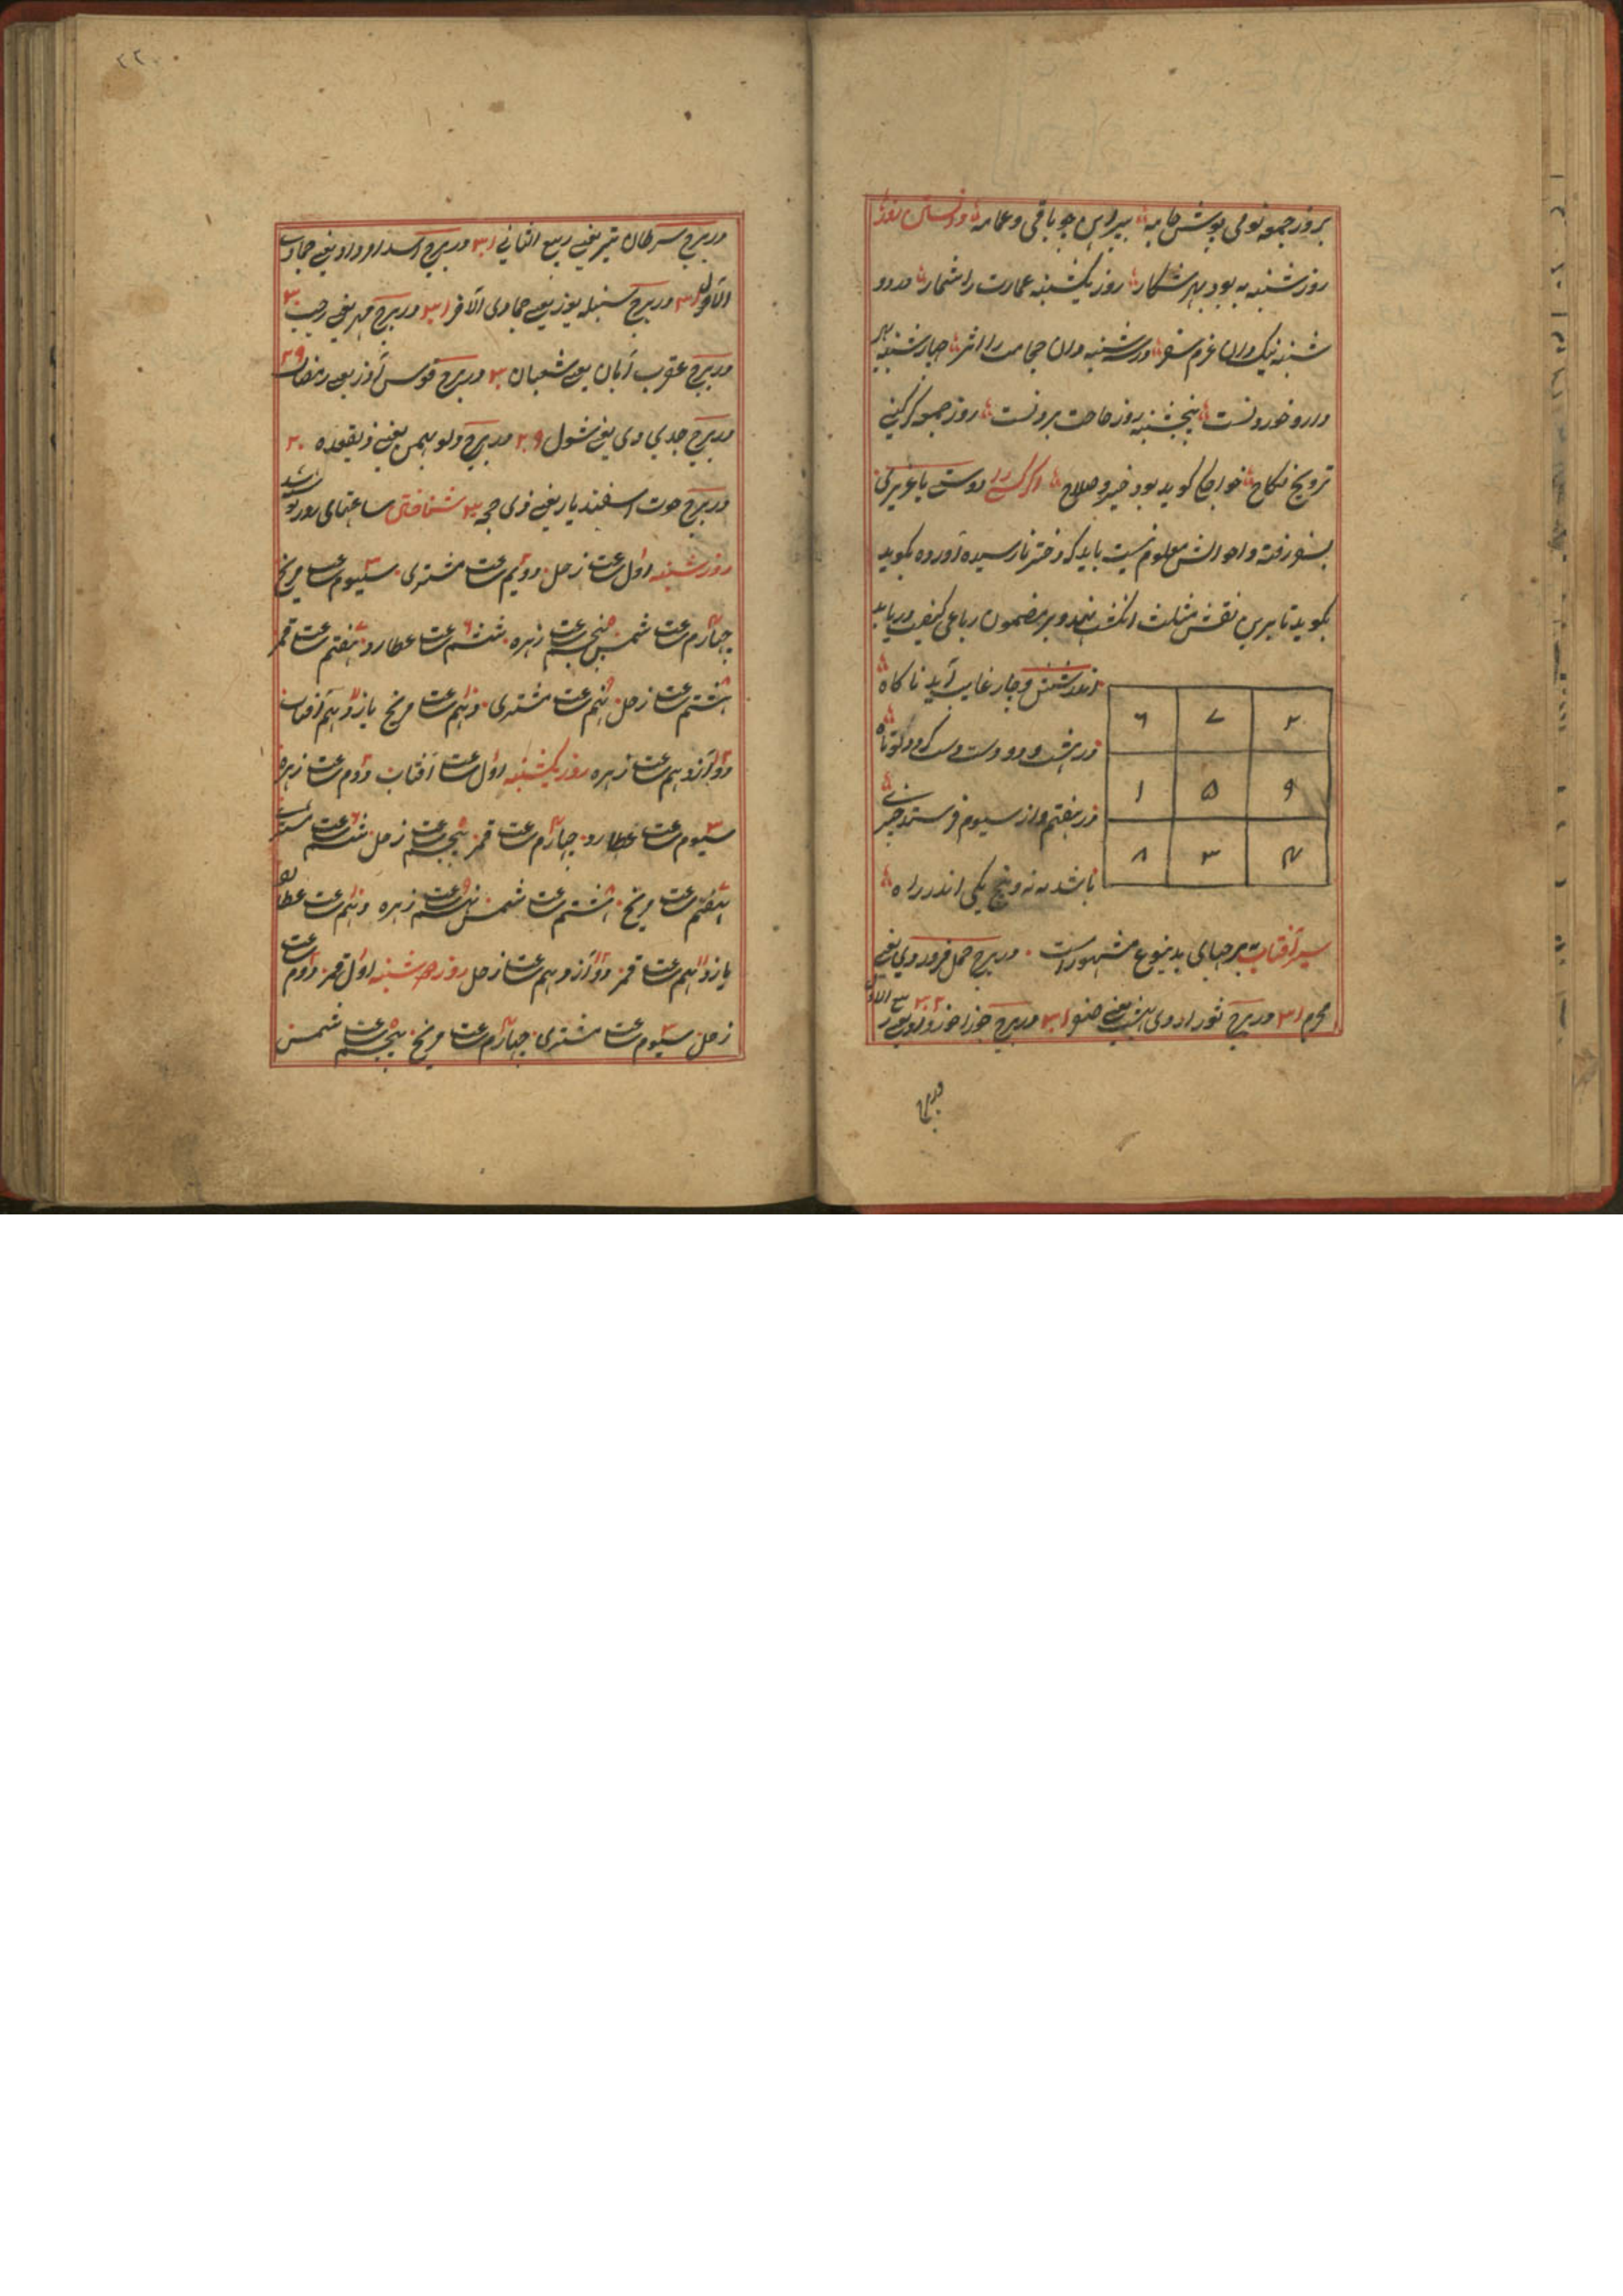 بروز جمعه نومی پوش جامه پیراهن چو باقی و عمامه دانستن روزها
روز شنبه به بود بهر شکار روز یکشنبه عمارت را شمار در دو
شنبه نیک دان عزم سفر در سه شنبه دان حجامت را اثر چهارشنبه بهر
دارو خوردنست پنجشنبه روز حاجت بردنست روز جمعه گر کنی
ترویج نکاح خواجها گوید بود خیر و صلاح اگر کسی را دوستی یا غیر کی
بسفر رفته و احوالش معلوم نیست باید که دختر نارسیده آورده بگوید
بگوید تا برین نقش مثلث انگشت نهد و بر مضمون رباعی کیفیت دریابد
اندر شش و چار غایب آید ناگاه
۶ ۷ ۲
در هشت و دو دوست
۱ ۵ ۹
در هفتم و از سیوم فرستد خبری
۸ ۳ ۴
باشد به نه و پنج یکی اندر راه
سیر آفتاب برجهای بدینوع مشهور است در برج حمل فروردی یعنی
محرم ۳۱ در برج ثور اردی بهشت یعنی صفر ۳۱ در برج جوزا خورداد یعنی ربیع الاول ۳۲
در برج
۲۲۰
در برج سرطان تیر یعنی ربیع الثانی ۳۱ در برج اسد امرداد یعنی جمادی
الاول ۳۱ در برج سنبله یوز یعنی جمادی الآخر ۳۱ در برج مهر یعنی رجب ۳۰
در برج عقرب آبان یعنی شعبان ۳۰ در برج قوس آذر یعنی رمضان ۲۹
در برج جدی دی یعنی شول ۲۹ در برج دلو بهمن یعنی ذیقعده ۳۰
در برج حوت اسفندیار یعنی ذی حجه ۳۰ شناختن ساعتهای روز
روز شنبه اول ساعت زحل دویم ساعت مشتری سیوم ساعت مریخ
چهارم ساعت شمس پنجم ساعت زهره ششم ساعت عطارد هفتم ساعت قمر
هشتم ساعت زحل نهم ساعت مشتری دهم ساعت مریخ یازدهم آفتاب
دوازدهم ساعت زهره روز یکشنبه اول ساعت آفتاب دوم ساعت زهره
سیوم ساعت عطارد چهارم ساعت قمر پنجم ساعت زحل ششم ساعت مشتری
هفتم ساعت مریخ هشتم ساعت شمس نهم ساعت زهره دهم ساعت عطارد
یازدهم ساعت قمر دوازدهم ساعت زحل روز دوشنبه اول قمر دوم ساعت
زحل سیوم ساعت مشتری چهارم ساعت مریخ پنجم ساعت شمس